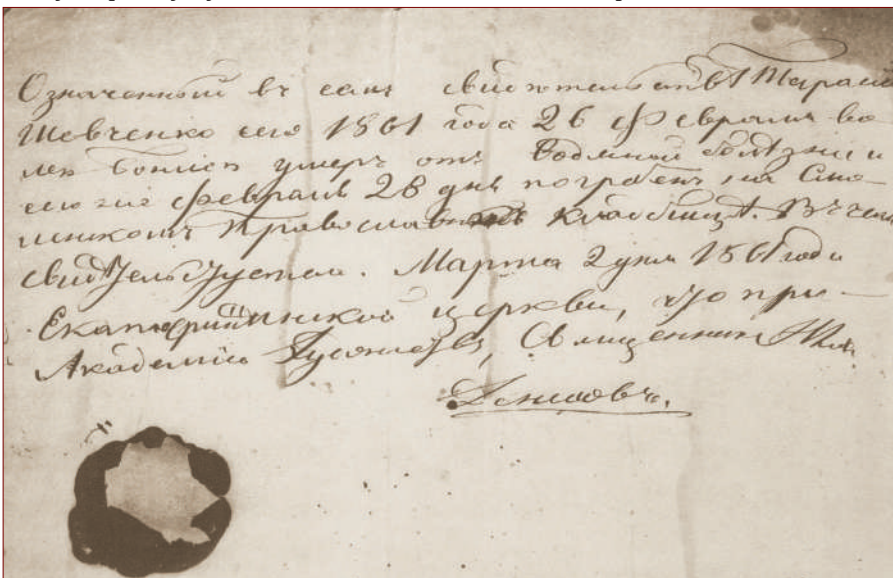 Означенный въ семъ свидѣтельствѣ Тарасъ
Шевченко сего 1861 года 26 февраля во-
лею Божіею умеръ отъ водяной болѣзни и
сего же февраля 28 дня погребенъ на Смо-
ленскомъ православномъ кладбищѣ. Въ чемъ
свидѣтельствую. Марта 2 дня 1861 года
Екатерининской церкви, что при
Академіи Художествъ, Священникъ
Денисовъ.